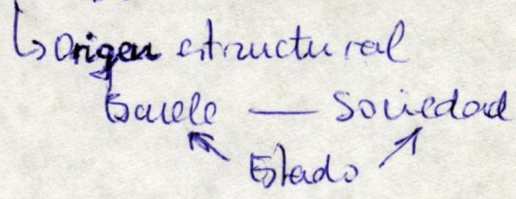 ↳ origen estructural
— Sociedad
Estado